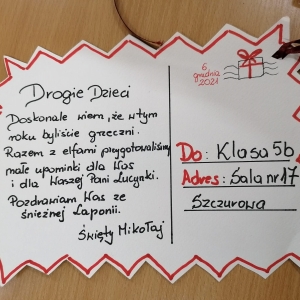 Drogie Dzieci
Doskonale wiem, że w tym
roku byliście grzeczni.
Razem z elfami przygotowaliśmy
małe upominki dla Was
i dla Waszej Pani Lucynki.
Pozdrawiam Was ze
śnieżnej Laponii.
Święty Mikołaj
6
grudnia
2021
Do: Klasa 5b
Adres: Sala nr 17
Szczurowa